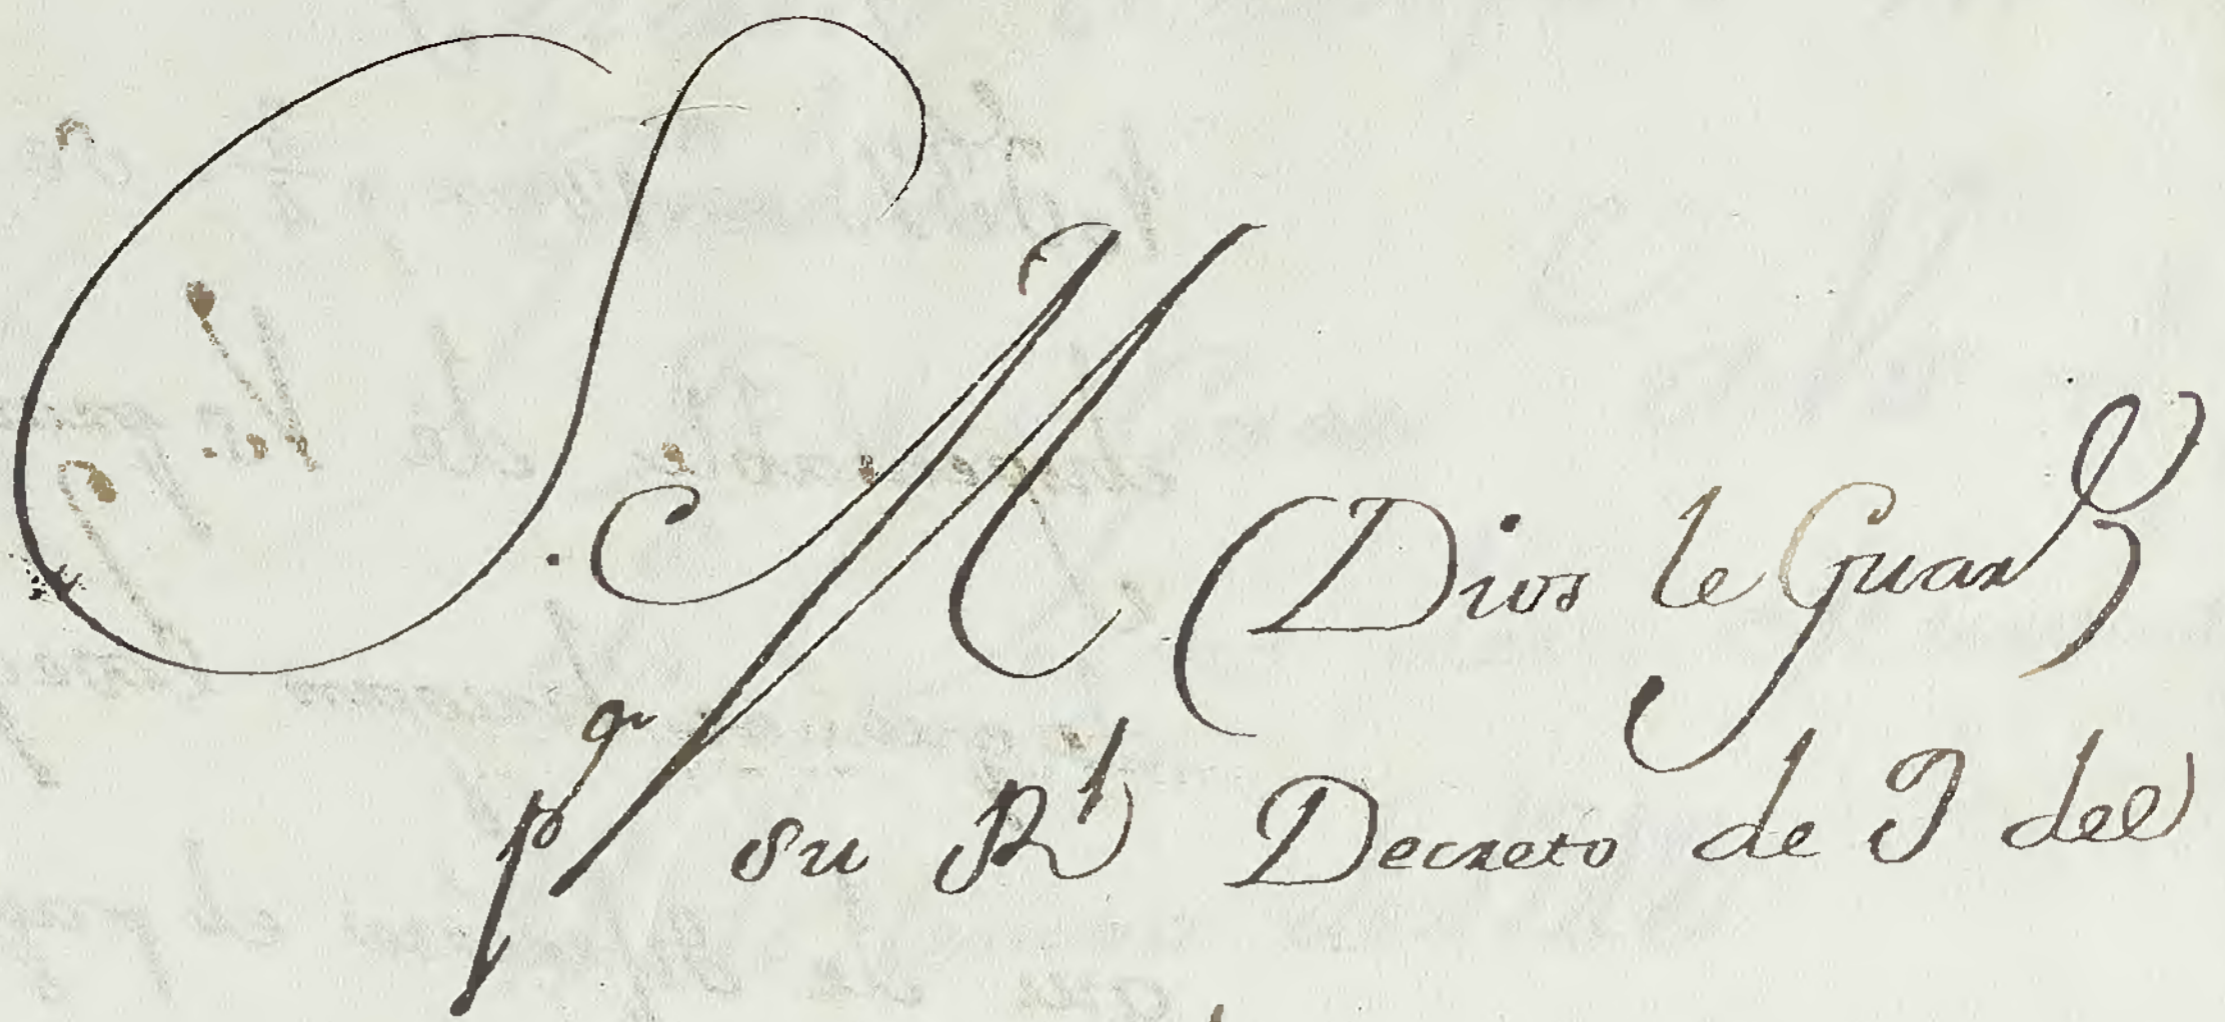 S. M (Dios le Guard)
pr su Rl Decreto de 9 del